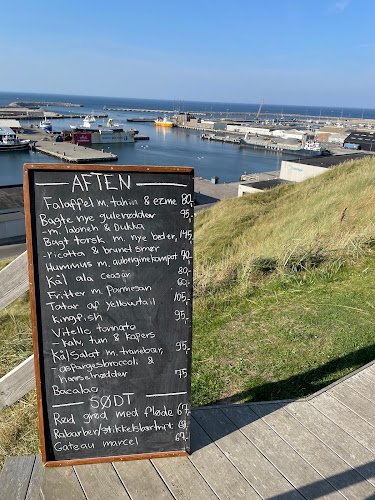 AFTEN
Falaffel m. tahin & ezme 80,-
Bagte nye gulerødder 95,-
-m. labneh & Dukka
Bagt torsk m. nye beder, 145,-
-ricotta & brunet smør
Hummus m. auberginekompot 90,-
Kål ala cesar 80,-
Fritter m. Parmesan 60,-
Tatar af yellowtail 105,-
Kingfish
Vitello tonnato 95,-
- kalv, tun & kapers
Kålsalat m. tranebær, 95,-
- aspargesbroccoli &
hasselnødder 75,-
Bacalao
SØDT
Rød grød med fløde 67,-
Rabarber/stikkelsbærtrifli
Gateau marcel 67,-